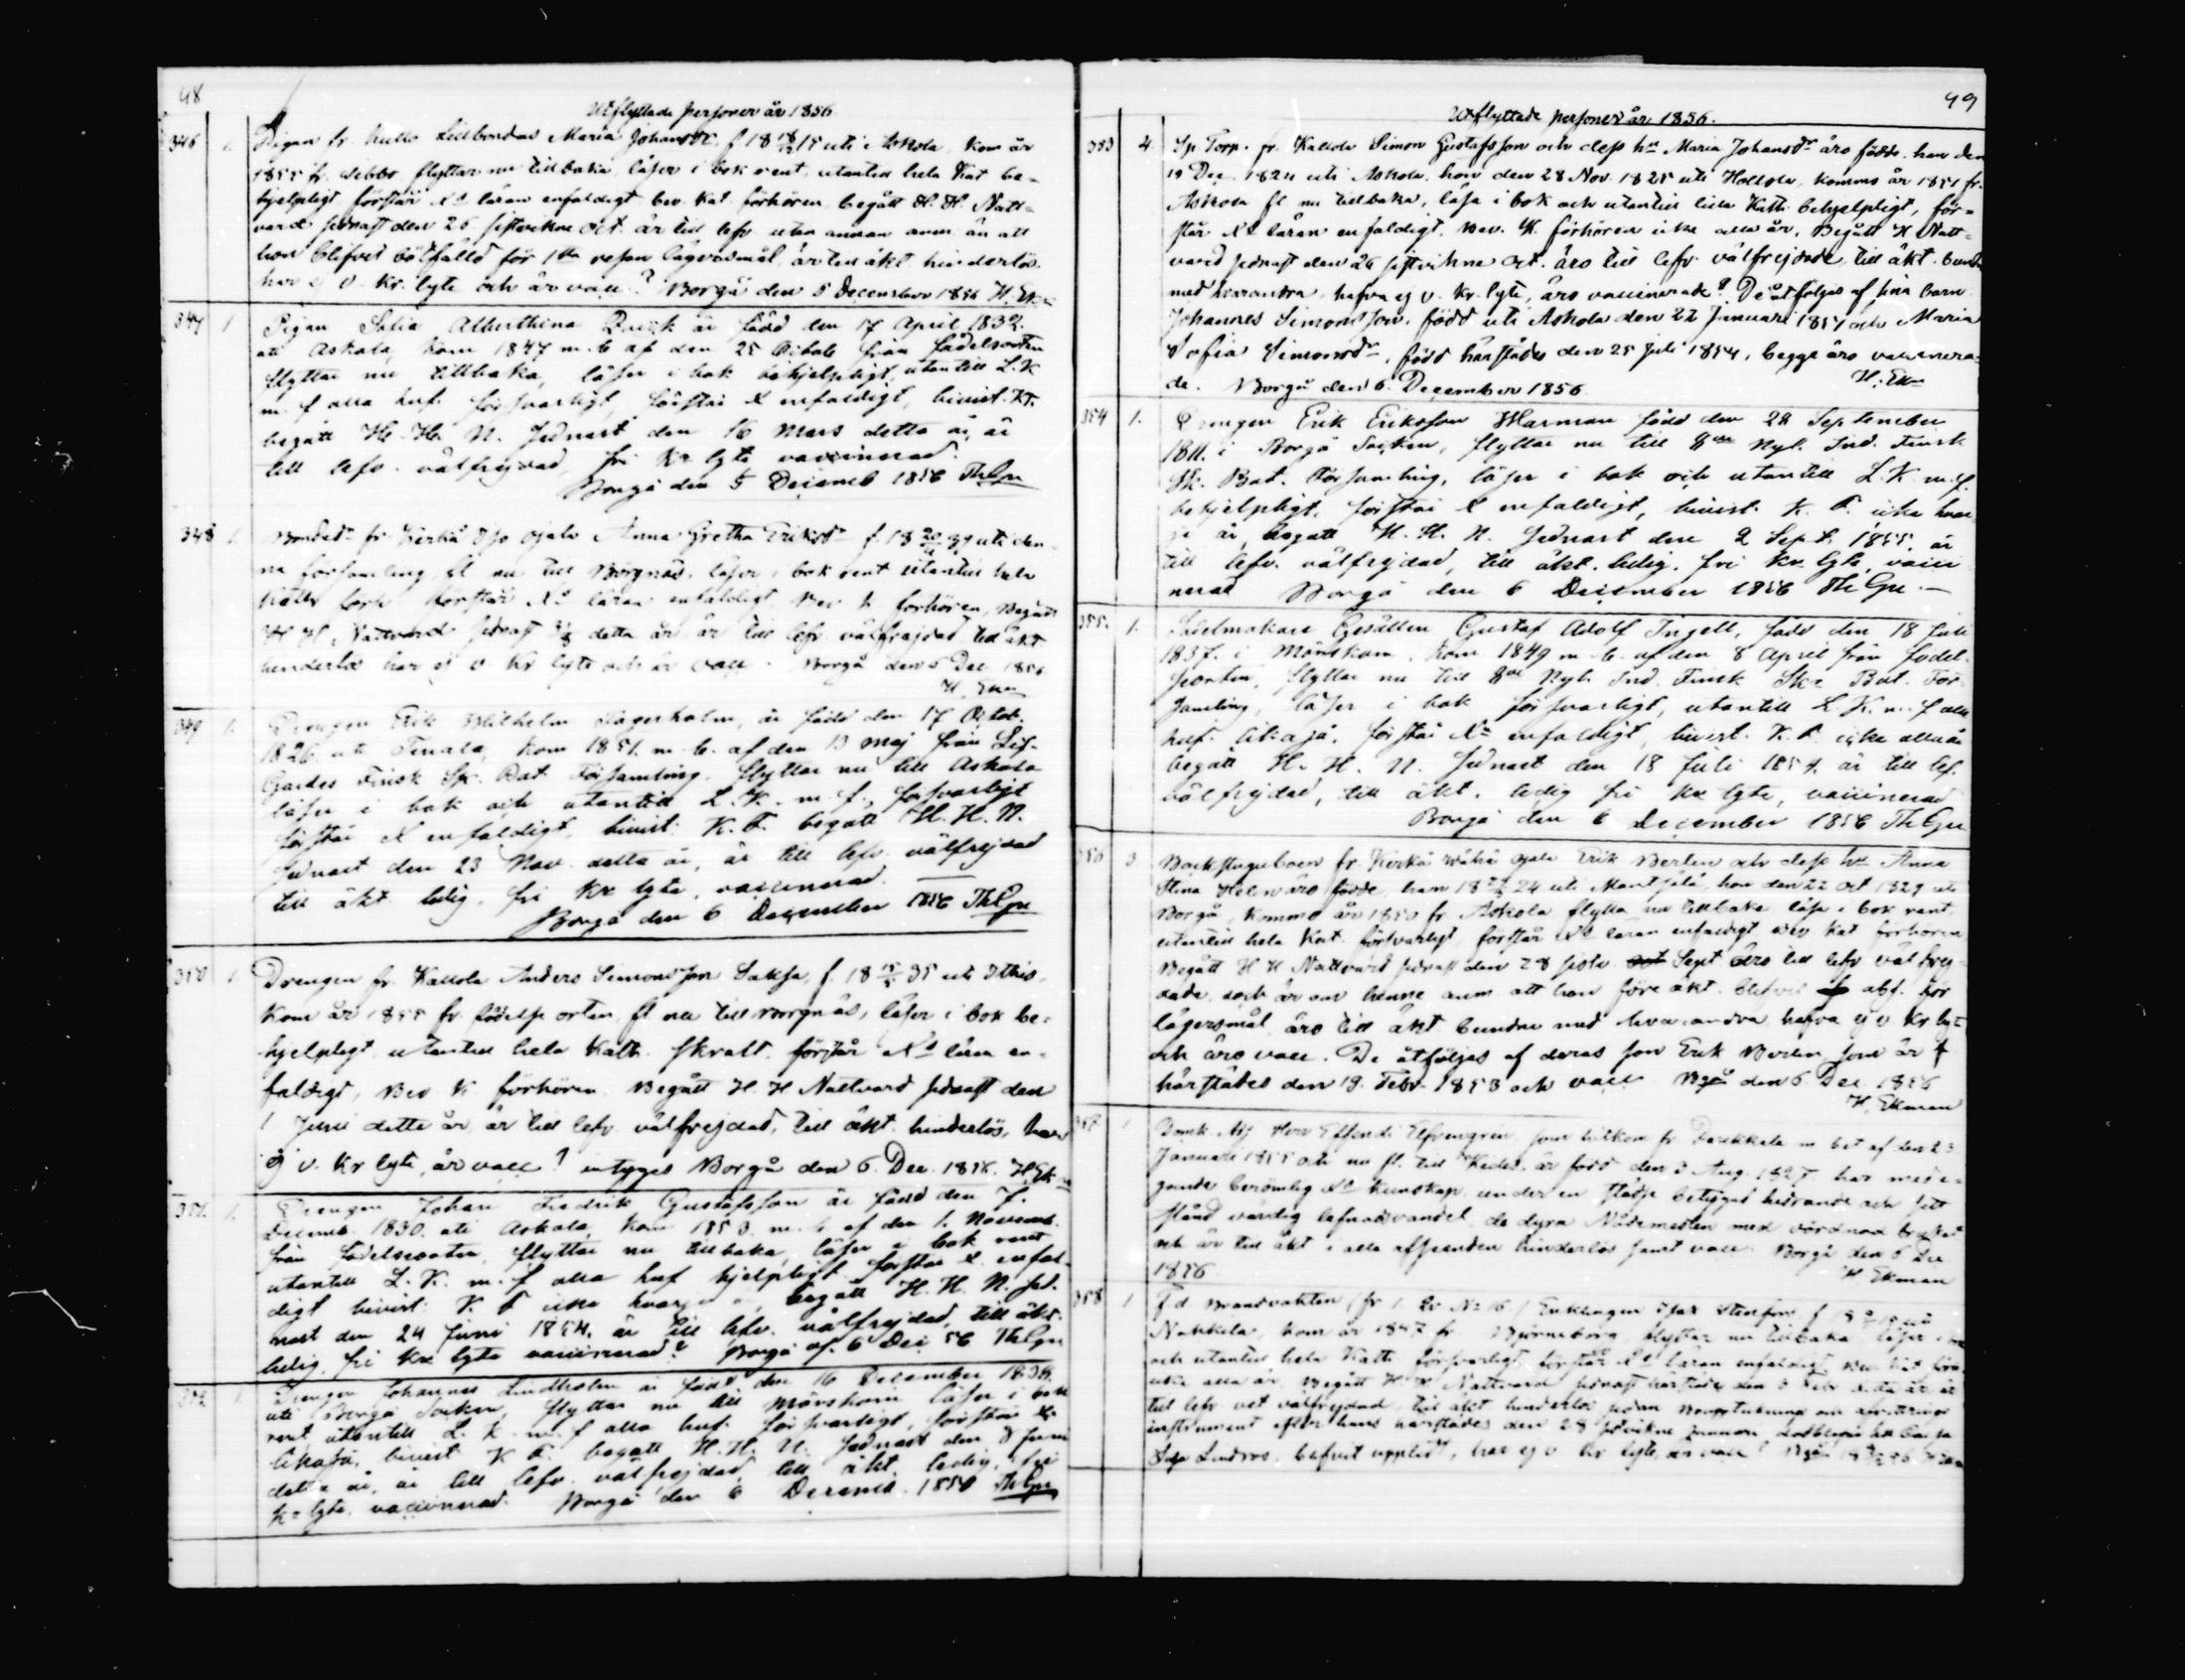 48
Utflyttade personer år 1856
346 1. Pigan fr. Lillbondas Maria Johansdr. f 18 18/12 15 uti Askola, kom år
1855 fr. Sibbo flyttar nu tillbaka, läser i bok rent, utantill hela Kat be-
hjelpligt, förstår Xs läran enfaldigt bev. kat. förhören, begått H. H. Natt-
vard sednast den 26 sistvikne Oct. är till lefv. utan annan anm. än att
hon blifvit bötfälld för 1sta resan lägersmål, är till äkt hinderlös.
har ej v. Kr. lyte och är vacc? Borgå den 5 December 1856 H. Ekm
347 1 Pigan Sofia Alberthina är född den 17 April 1832.
uti Askola, kom 1847 m. b. af den 25 Octob från födelseorten
flyttar nu tillbaka, läser i bok behjelpligt, utantill L. K
m. f alla huf. försvarligt, förstår X enfaldigt, bivist. K. F.
begått H. H. N. sednast den 16 Mars detta år, är
till lefv. välfrejdad, fri Kr lyte vaccinerad.
Borgå den 5 Decemb 1856 ThGn
348 1. fr. Kerkå Anna Gretha Eriksdr f. 18 39 uti den-
na församling, fl nu till Borgnäs, läser i bok rent utantill hela
förstår Xs läran enfaldigt Bev k förhören, Begått
H H. Nattvard sednast detta år är till lefv välfrejdad till äkt
hinderlös har ej v Kr lyte och är vacc. Borgå den 5 Dec. 1856
H. Ekm
349 1. Drengen Erik Wilhelm Hägerholm, är född den 17 Octob.
1826 uti Tenala, kom 1851. m. b. af den 13 Maj från Lif-
Gardes Finsk Sk. Bat. Församling, flyttar nu till Askola
läser i bok och utantill L. K. m. f., försvarligt
förstår X enfaldigt, bivist. K. F. begått H. H. N.
sednast den 23 Nov. detta år, är till lefv. välfrejdad
till äkt ledig, fri Kr lyte, vaccinerad.
Borgå den 6 December 1856 ThGn
350 1. Drengen fr. Kallola Anders Simonsson f. 18 35 uti
kom år 1855 fr. födelse orten fl nu till Borgnäs, läser i bok be-
hjelpligt utantill hela Kath. skralt. förstår Xs läran en-
faldigt, Bev. K förhören. Begått H. H Nattvard sednast den
1 Juni detta år, är till lefv. välfrejdad, till äkt. hinderlös, har
ej v. Kr lyte, är vacc? intyges Borgå den 6 Dec. 1856. H. Ek
351. 1. Drengen Johan Fredrik Gustafsson är född den 7.
Decemb. 1830. uti Askola, kom 1853. m. b. af den 1. Novemb.
från födelseorten, flyttar nu tillbaka, läser i bok rent
utantill L. K. m. f alla huf hjelpligt förstår X enfal-
digt bivist. K. F icke hvarje år, begått H. H. N. sed-
nast den 24 Juni 1854. är till lefv. välfrejdad, till äkt.
ledig, fri Kr lyte vaccinerad? Borgå af 6 Dec 56 ThGn
352 1. Drengen Johannes Lindholm är född den 16 December 1836.
uti Borgå Socken, flyttar nu till Mörskom läser i bok
rent utantill L. K. m. f alla huf. försvarligt, förstår X
likaså, bivist K F. begått H. H. N. sednast den 8 Juni
detta år, är till lefv. välfrejdad, till äkt. ledig, fri
Kr lyte. vaccinerad. Borgå den 6 Decemb. 1856 ThGn
49
Utflyttade personer år 1856.
353 4. Sp. Torp. fr. Kallola Simon Gustafsson och dess hu Maria Johansdr äro födde. han den
19 Dec. 1824 uti Askola, hon den 28 Nov. 1825 uti Hollola, kommo år 1851 fr.
Askola fl nu tillbaka, läsa i bok och utantill lilla Kath. behjelpligt, för-
står Xs läran enfaldigt. Bev. K. förhören icke alla år, Begått H Natt-
vard sednast den 26 sistvikne Oct. äro till lefv. välfrejdade till äkt. bundne
med hvarandra, hafva ej v. Kr. lyte, äro vaccinerade? De åtföljas af sina barn
Johannes Simonsson, född uti Askola den 22 Januari 1851 och Maria
Sofia Simonsdr, född härstädes den 25 Juli 1854, begge äro vaccinera-
de. Borgå den 6. December 1856. H. Ekm
354 1. Drengen Erik Eriksson Warman född den 28 September
1811. i Borgå Socken, flyttar nu till 8de Nyl. Ind. Finsk
Sk. Bat. Församling, läser i bok och utantill L. K. m. f.
behjelpligt, förstår X enfaldigt, bivist. K. F. icke hvar-
je år, begått H. H. N. sednast den 2 Sept. 1855. är
till lefv. välfrejdad, till äkt. ledig, fri Kr. lyte, vacci
nerad Borgå den 6 December 1856 ThGn.
355. 1. Sadelmakare Gesällen Gustaf Adolf Ingell, född den 18 Juli
1837. i Mörskom, kom 1849 m. b. af den 8 April från födel-
seorten, flyttar nu till 8de Nyl. Ind. Finsk Sk. Bat. För-
samling, läser i bok försvarligt, utantill L. K. m. f alla
huf. likaså, förstår Xn enfaldigt, bivist. K. F. icke alla år
begått H. H. N. sednast den 18 Juli 1854. är till lef.
välfrejdad, till äkt. ledig fri Kr lyte, vaccinerad
Borgå den 6 December 1856 ThGn
356 3 Backstuguboen fr. Kerkå Erik Berlin och dess hu Anna
Stina äro födde, han 18 24 uti Mäntsälä, hon den 22 Oct 1829 uti
Borgå, kommo år 1850 fr. Askola flytta nu tillbaka läsa i bok rent
utantill hela Kat. försvarligt förstår Xs läran enfaldigt Bev Kat förhören
Begått H H Nattvard sednast den 28 Sept äro till lefv välfrej-
dade, dock är om henne anm att hon före äkt. blifvit abs. för
lägersmål, äro till äkt bundne med hvarandra hafva ej v Kr lyte
och äro vacc. De åtföljas af deras son Erik Berlin, som är f
härstädes den 19. Febr. 1853 och vacc Bgå den 6 Dec 1856
H. Ekman
357 1 Domk. Herr som hitkom fr. m bet af den 23
Januari 1855 och nu fl. till Kides, är född den 3 Aug. 1827 har
berömlig Xs kunskap, under en
värdig lefnadsvandel, de dyra Nådemedlen med vördnad brukat
och är till äkt i alla afseenden hinderlös samt vacc. Borgå den 6 Dec
1856 H. Ekman
358 1 F. d. Brandvakten (fr. 1 Qv No 16) Enklingen Isak Stenfors f
Nakkila, kom år 1847 fr. Björneborg, flyttar nu tillbaka läser i bok
och utantill hela Kath försvarligt, förstår Xs läran enfaldigt,
icke alla år, Begått H. H. Nattvard sednast härstädes den 3 Febr detta år är
till lefv välfrejdad till äkt hinderlös sedan
instrument efter hans härstädes den 28 sistvikne
Lindros, blifvit upplåst, har ej v Kr lyte, är vacc?